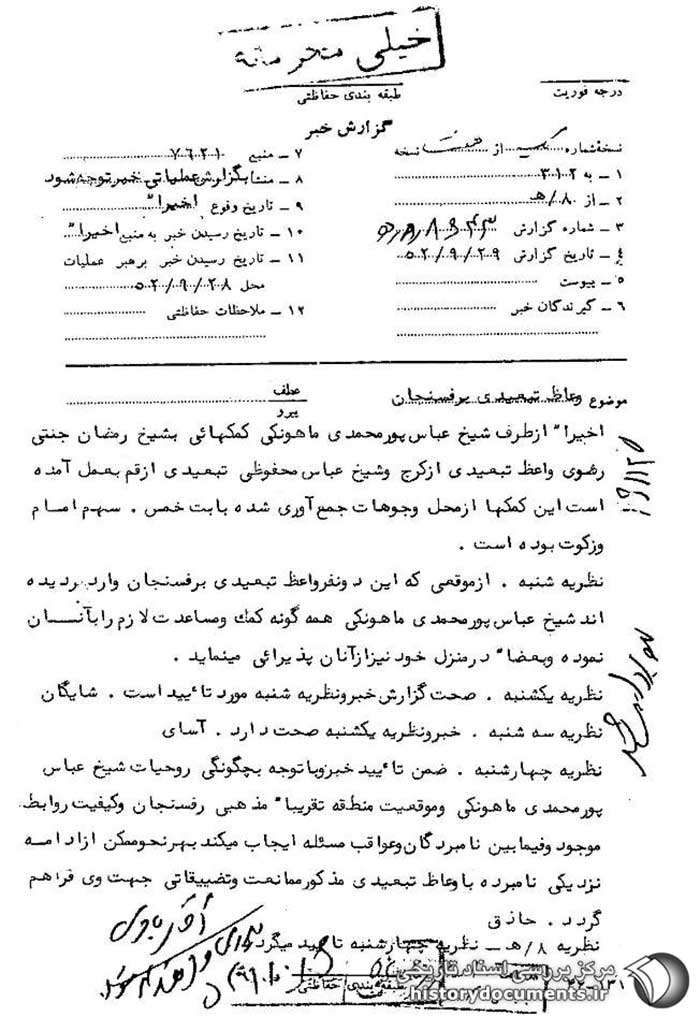 خیلی محرمانه
طبقه بندی حفاظتی
درجه فوریت
گزارش خبر
نسخه شماره یک از هفت نسخه
۱ ـ به ۳۰۲
۲ ـ از ۸/هـ
۳ ـ شماره گزارش
٤ ـ تاریخ گزارش ۵۰۲/۹/۲۹
۵ ـ پیوست
۶ ـ گیرندگان خبر
۷ ـ منبع ۷۶۲۱۰
۸ ـ منشا بگزارش عملیاتی خبر توجه شود
۹ ـ تاریخ وقوع اخیرا"
۱۰ ـ تاریخ رسیدن خبر به منبع اخیرا"
۱۱ ـ تاریخ رسیدن خبر برهبر عملیات
محل ۵۰۲/۹/۲۸
۱۲ ـ ملاحظات حفاظتی
موضوع وعاظ تبعیدی برفسنجان
عطف
پیرو
اخیرا" ازطرف شیخ عباس پورمحمدی ماهونکی کمکهائی بشیخ رمضان جنتی
رضوی واعظ تبعیدی ازکرج وشیخ عباس محفوظی تبعیدی ازقم بعمل آمده
است این کمکها ازمحل وجوهات جمع آوری شده بابت خمس . سهم امام
وزکوت بوده است .
نظریه شنبه . ازموقعی که این دونفرواعظ تبعیدی برفسنجان وارد گردیده
اند شیخ عباس پورمحمدی ماهونکی همه گونه کمك ومساعدت لازم رابآنسان
نموده وبعضا" درمنزل خود نیزازآنان پذیرائی مینماید .
نظریه یکشنبه . صحت گزارش خبرونظریه شنبه مورد تائید است . شایگان
نظریه سه شنبه . خبرونظریه یکشنبه صحت دارد . آسای
نظریه چهارشنبه . ضمن تائید خبروباتوجه بچگونگی روحیات شیخ عباس
پورمحمدی ماهونکی وموقعیت منطقه تقریبا" مذهبی رفسنجان وکیفیت روابط
موجود وفیمابین نامبردگان وعواقب مسئله ایجاب میکند بهرنحوممکن ازادامه
نزدیکی نامبرده باوعاظ تبعیدی مذکورممانعت وتضییقاتی جهت وی فراهم
گردد . حاذق
نظریه ۸/هـ ـ نظریه چهارشنبه تائید میگردد
طبقه بندی حفاظتی
۲۲ـ۱۳۱
مرکز بررسی اسناد تاریخی
historydocuments.ir